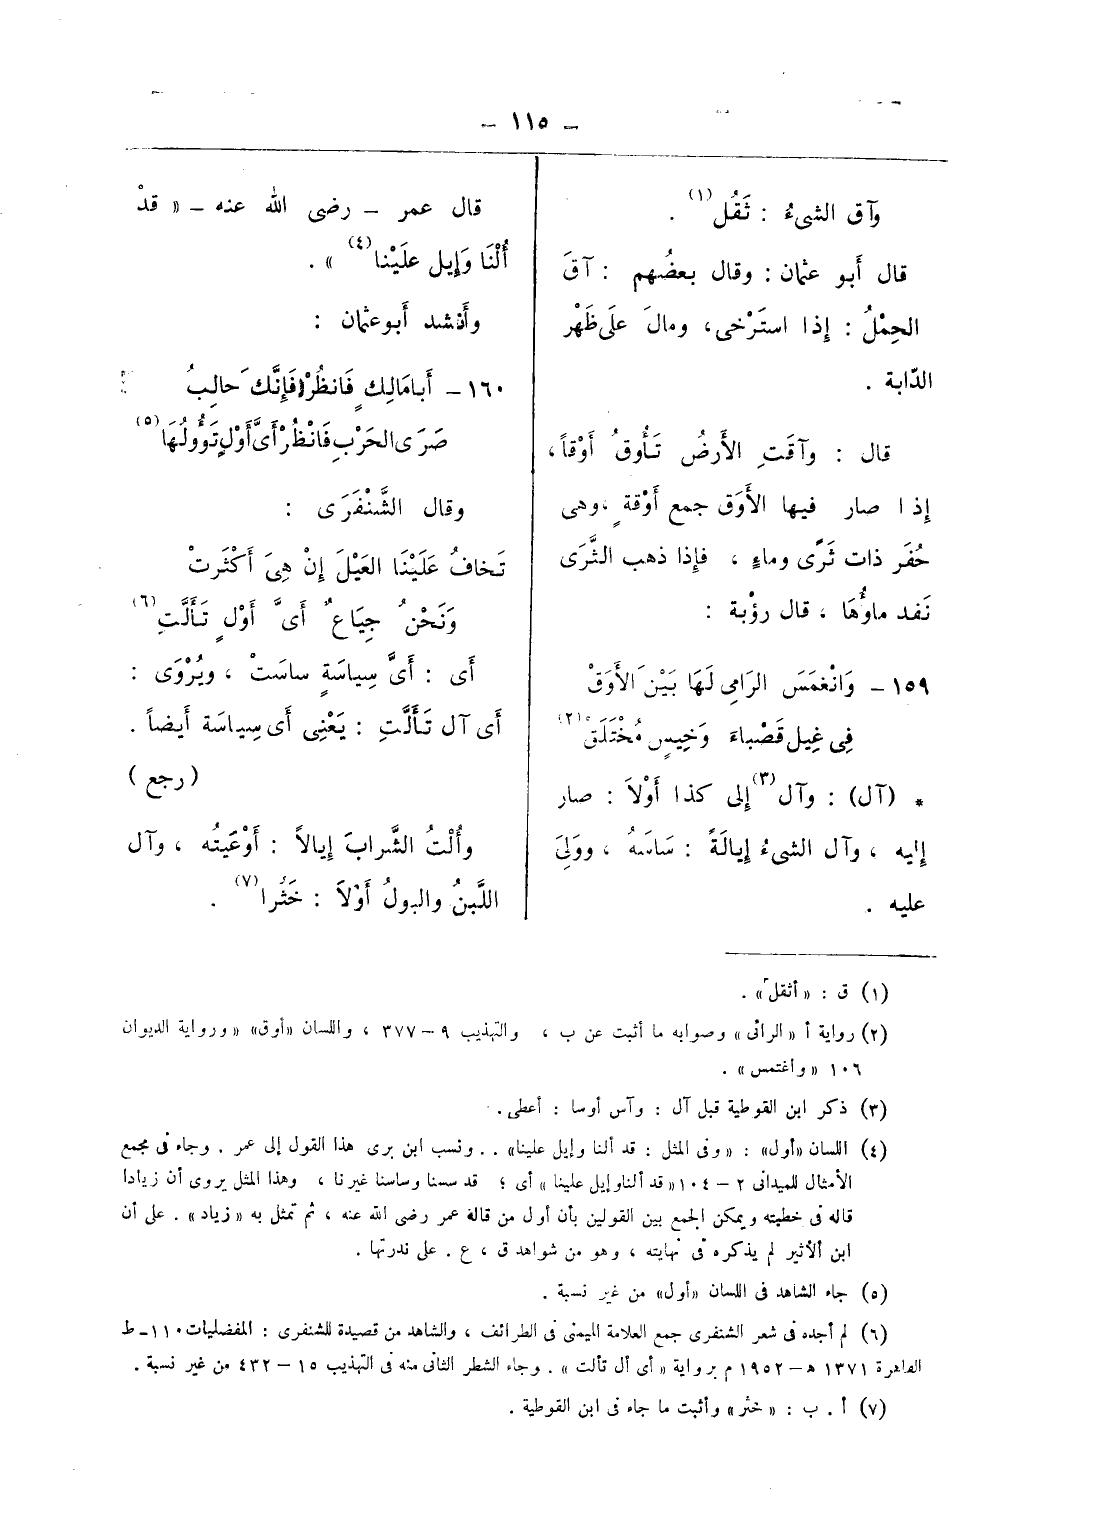 – ١١٥ –
وآق الشىءُ : ثَقُل(١) .
قال أَبو عثمان : وقال بعضُهم : آقَ
الحِمْلُ : إِذا استَرْخى، ومالَ علَى ظَهْر
الدّابة .
قال : وآقَتِ الأَرضُ تَأُوقُ أَوْقاً،
إِذا صار فيها الأَوَق جمع أَوْقةٍ ، وهى
حُفَر ذات ثَرًى وماءٍ ، فإِذا ذهب الثَّرَى
نَفد ماؤُهَا ، قال رؤْبة :
١٥٩ – وَانْغمَسَ الرَامِى لَهَا بَيْنَ الأَوَقْ
فِى غِيل قَصْباءَ وَخِيسٍ مُخْتَلَقْ(٢)
* (آل) : وآل(٣) إِلى كذا أَوْلاَ : صار
إِليه ، وآل الشىءُ إِيالَةً : سَاسَهُ ، ووَلِىَ
عليه .
قال عمر – رضى الله عنه – « قدْ
أُلْنَا وَإِيل علَيْنا(٤) » .
وأَنشد أَبوعثمان :
١٦٠ – أَبامَالِكٍ فَانظُرْ فَإِنَّك حالِبُ
صَرَى الحَرْبِ فَانْظُرْ أَىَّ أَوْلٍ تَؤُولُهَا(٥)
وقال الشَّنْفَرَى :
تَخافُ عَلَيْنَا العَيْلَ إِنْ هِىَ أَكْثَرتْ
وَنَحْنُ جِيَاعٌ أَىَّ أَوْلٍ تَأَلَّتِ(٦)
أَى : أَىَّ سِياسَةٍ ساسَتْ ، ويُرْوَى :
أَى آل تَأَلَّتِ : يَعْنِى أَى سِياسَة أَيضاً .
(رجع)
وأُلْتُ الشَّرابَ إِيالاً : أَوْعَيتُه ، وآل
اللَّبنُ والبولُ أَوْلاً : خَثُرا(٧) .
(١) ق : « أثقل » .
(٢) رواية أ « الرائى » وصوابه ما أثبت عن ب ، والتهذيب ٩ – ٣٧٧ ، واللسان « أوق » « ورواية الديوان
١٠٦ « وأغتمس » .
(٣) ذكر ابن القوطية قبل آل : وآس أوسا : أعطى .
(٤) اللسان « أول » : « وفى المثل : قد ألنا وإيل علينا » . . ونسب ابن برى هذا القول إلى عمر . وجاء فى مجمع
الأمثال للميدانى ٢ – ١٠٤ « قد ألنا وإيل علينا » أى ؛ قد سسنا وساسنا غيرنا ، وهذا المثل يروى أن زيادا
قاله فى خطبته ويمكن الجمع بين القولين بأن أول من قاله عمر رضى الله عنه ، ثم تمثل به « زياد » . على أن
ابن الأثير لم يذكره فى نهايته ، وهو من شواهد ق ، ع . على ندرتها .
(٥) جاء الشاهد فى اللسان « أول » من غير نسبة .
(٦) لم أجده فى شعر الشنفرى جمع العلامة الميمنى فى الطرائف ، والشاهد من قصيدة للشنفرى : المفضليات ١١٠ – ط
القاهرة ١٣٧١ هـ – ١٩٥٢ م برواية « أى أل تألت » . وجاء الشطر الثانى منه فى التهذيب ١٥ – ٤٣٢ من غير نسبة .
(٧) أ . ب : « خثر » وأثبت ما جاء فى ابن القوطية .